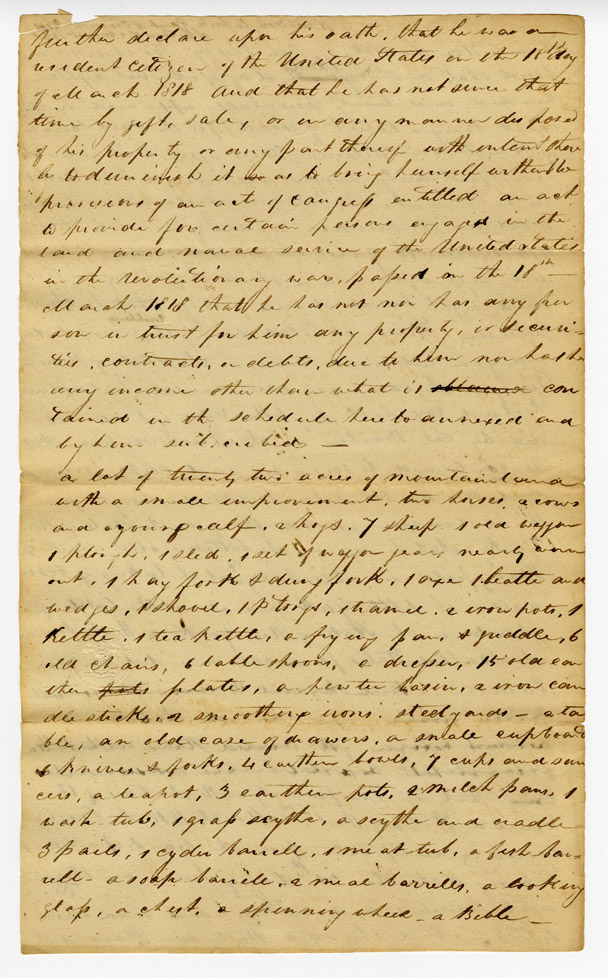 further declare upon his oath, that he was a
resident citizen of the United States on the 18th day
of March 1818 and that he has not since that
time by gift, sale, or in any manner disposed
of his property or any part thereof with intent there
by to diminish it so as to bring himself within the
provisions of an act of Congress entitled an act
to provide for certain persons engaged in the
land and naval service of the United States
in the revolutionary war, passed on the 18th
March 1818 that he has not nor has any per
son in trust for him any property, or securi-
ties, contracts, or debts, due to him nor has he
any income other than what is con
tained in the schedule hereto annexed and
by him subscribed —
a lot of twenty two acres of mountain land
with a small improvement, two horses, 2 cows
and a young calf, 2 hogs, 7 sheep 1 old waggon
1 plough, 1 sled, 1 set of waggon gears nearly worn
out, 1 hay fork & dung fork, 1 axe 1 beatle and
wedges, 1 shovel, 1 p tongs, 1 hamel. 2 iron pots, 1
kettle, 1 tea kettle, a frying pan, & griddle, 6
old chairs, 6 table spoons, a dresser, 15 old ear
then plates, a pewter basin, 2 iron can
dle sticks, 2 smoothing irons, steelyards — a ta
ble, an old case of drawers, a small cupboard
6 knives & forks, 4 earthen bowls, 7 cups and sau
cers, a teapot, 3 earthen pots, 2 milch pans, 1
wash tub, 1 grass scythe, a scythe and cradle
3 pails, 1 cyder barrell, 1 meat tub, a fish bar-
rell - a soap barrele, 2 meal barrells, a looking
glass, a chest, a spinning wheel — a Bible —